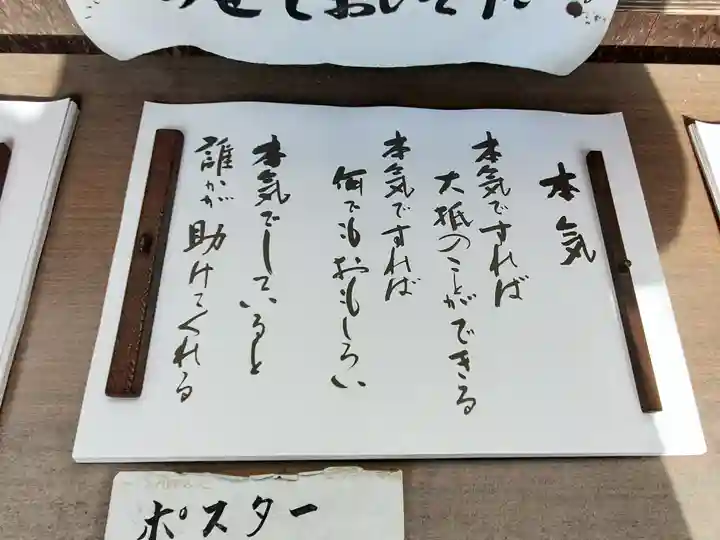 のせておいでた
本気
本気ですれば
大抵のことができる
本気ですれば
何でもおもしろい
本気でしていると
誰かが助けてくれる
ポスター